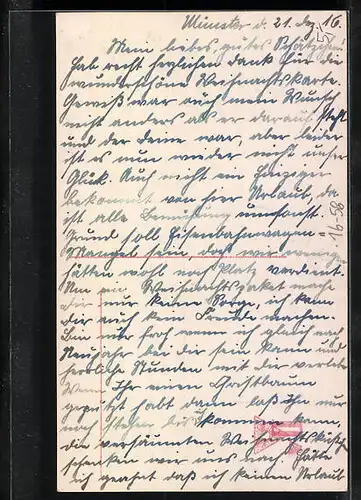 Münster d. 21. Dez. 16.
Mein liebes, gutes Schätzchen!
Hab recht herzlichen Dank für die
wunderschöne Weihnachtskarte.
Gewiß war auch mein Wunsch
nicht anders als er darauf steht
und der Deine war, aber leider
ist es nun wieder nicht unser
Glück. Auch nicht ein Einziger
bekommt von hier Urlaub, da
ist alle Bemühung umsonst.
Grund soll Eisenbahnwagen-
Mangel sein, doch wir wenigen
hätten wohl noch Platz verdient.
Um ein Weihnachtspaket mache
Dir nur keine Sorge, ich kann
Dir auch kein Freude machen.
Bin nur froh wenn ich gleich nach
Neujahr bei dir sein kann und
herrliche Stunden mit dir verlebe
Wenn Ihr einen Christbaum
geputzt habt dann laß ihn nur
noch stehen bis ich kommen kann,
die versäumten Weihnachtsküsse
schenken wir uns noch. Hätte
ich geahnt daß ich keinen Urlaub
16-58